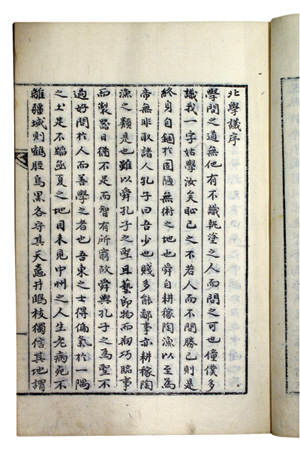 北學議序
學問之道無他有不識執塗之人而問之可也僮僕多
識我一字姑學汝矣恥己之不若人而不問勝己則是
終身自錮於固陋無術之地也舜自耕稼陶漁以至爲
帝無非取諸人孔子曰吾少也賤多能鄙事亦耕稼陶
漁之類是也雖以舜孔子之聖且藝即物而刱巧臨事
而製器日猶不足而智有所窮故舜與孔子之爲聖不
過好問於人而善學之者也吾東之士得偏氣於一隅
之土足不蹈函夏之地目未見中州之人生老病死不
離疆域則鶴脛烏黑各守其天蛙井鷃枝獨信其地謂